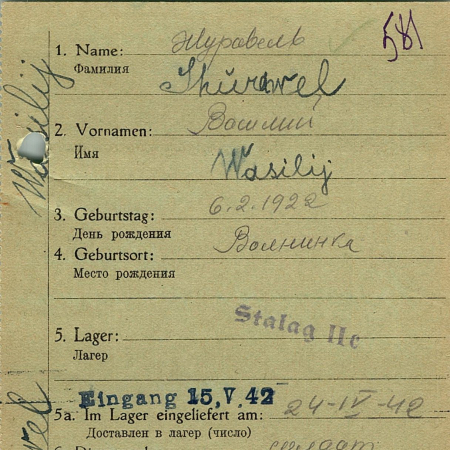 581
1. Name: Журавель
Фамилия
Shurawel
2. Vornamen: Василий
Имя
Wasilij
3. Geburtstag: 6.2.1922
День рождения
4. Geburtsort:
Место рождения
Stalag IIc
5. Lager:
Лагерь
Eingang 15.V.42
5a. Im Lager eingeliefert am: 24-IV-42
Доставлен в лагерь (число)
солдат
Wasilij